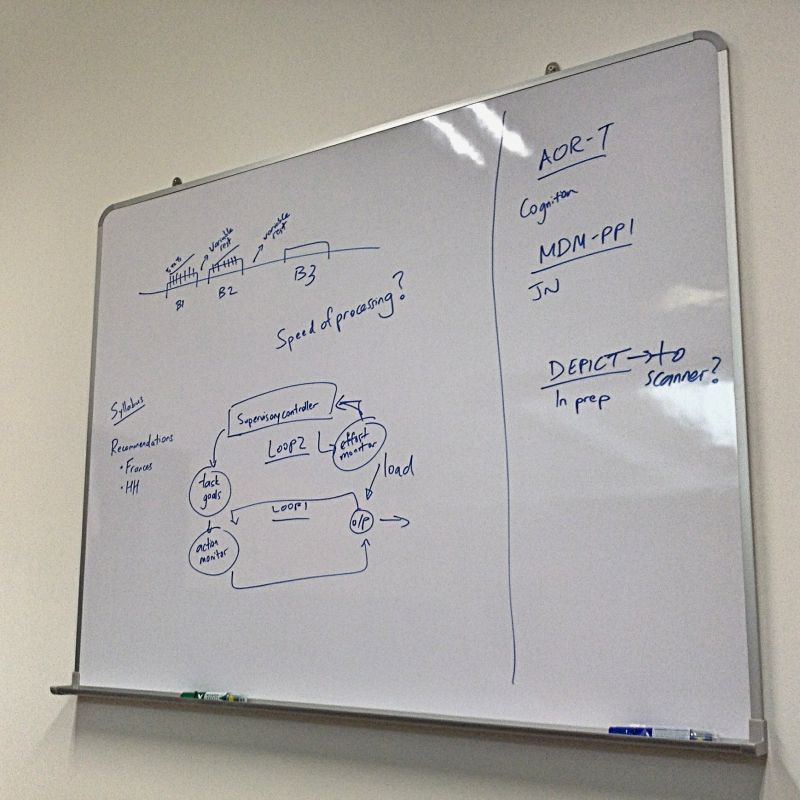 variable
rest
variable
rest
B1
B2
B3
Speed of processing?
Syllabus
Recommendations
• Frances
• HH
Supervisory controller
LOOP2
effort
monitor
task
goals
load
LOOP1
o/p
action
monitor
AOR-T
Cognition
MDM-PPI
JN
DEPICT → to
scanner?
In prep